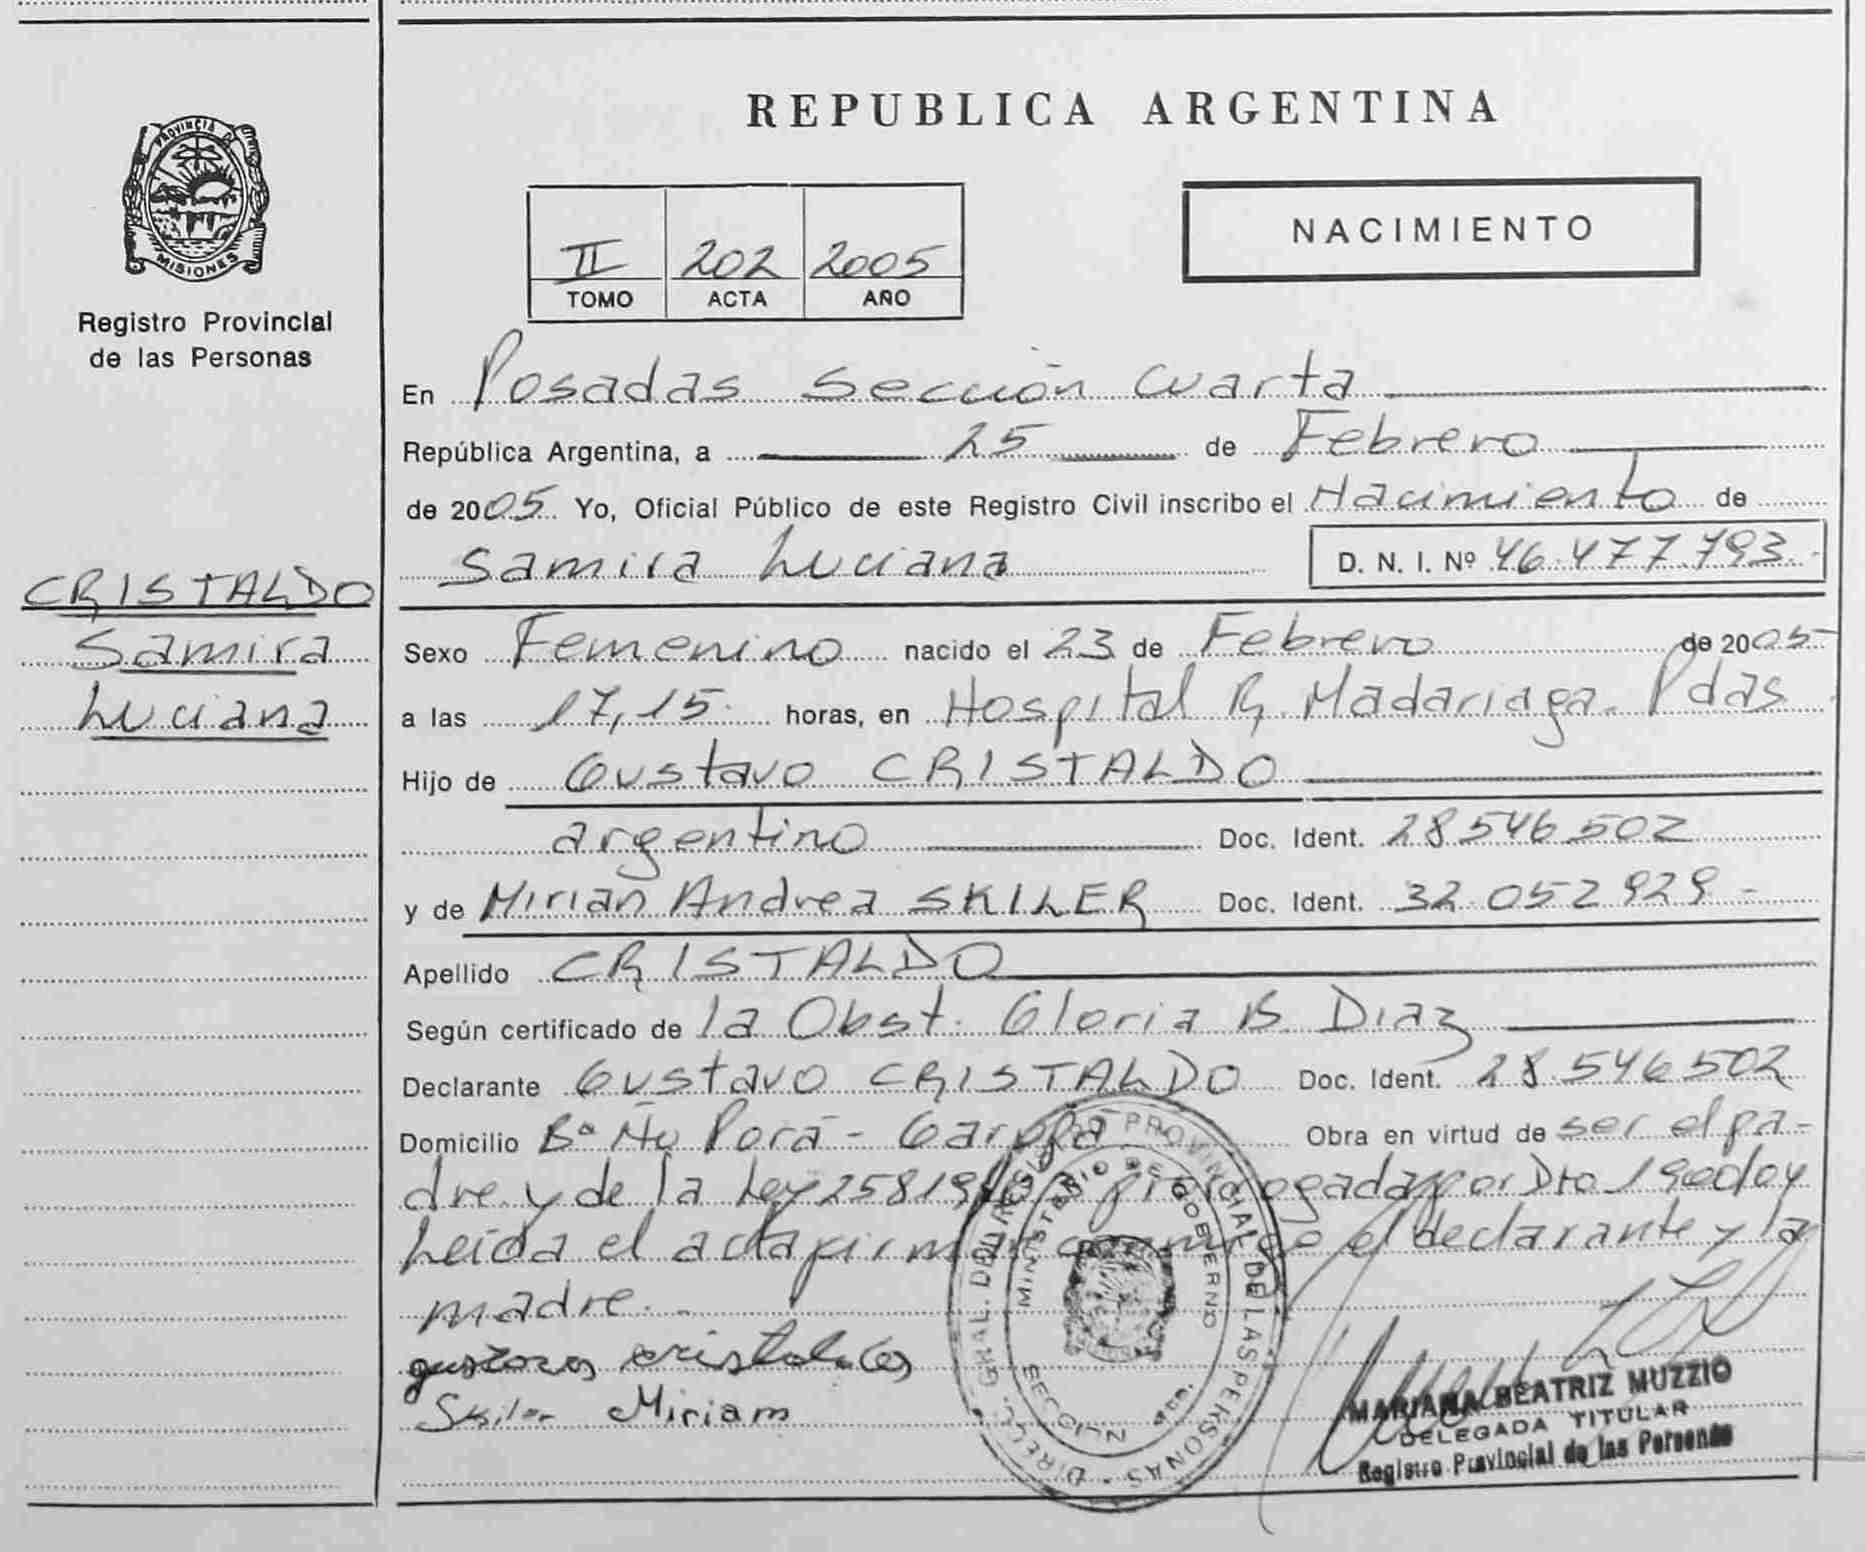 REPUBLICA ARGENTINA
PROVINCIA DE
MISIONES
Registro Provincial
de las Personas
II 202 2005
TOMO ACTA AÑO
NACIMIENTO
En Posadas Sección Cuarta
República Argentina, a 25 de Febrero
de 2005 Yo, Oficial Público de este Registro Civil inscribo el Nacimiento de
Samira Luciana D. N. I. Nº 46.477.793.-
CRISTALDO
Samira
Luciana
Sexo Femenino nacido el 23 de Febrero de 2005
a las 17,15. horas, en Hospital R. Madariaga. Pdas
Hijo de Gustavo CRISTALDO
argentino Doc. Ident. 28.546.502
y de Mirian Andrea SKILER Doc. Ident. 32.052.929-
Apellido CRISTALDO
Según certificado de la Obst. Gloria B. Diaz
Declarante Gustavo CRISTALDO Doc. Ident. 28.546.502
Domicilio Bº Ñu Porá - Garupá Obra en virtud de ser el pa-
dre y de la Ley 25819 prorrogada por Dto 190doy
Leída el acta firman conmigo el declarante y la
madre.-
gustavo cristaldo
Skiler Miriam
DIREC. GRAL. DEL REGISTRO PROVINCIAL DE LAS PERSONAS
MINISTERIO DE GOBIERNO
SECCION
MARIANA BEATRIZ MUZZIO
DELEGADA TITULAR
Registro Provincial de las Personas